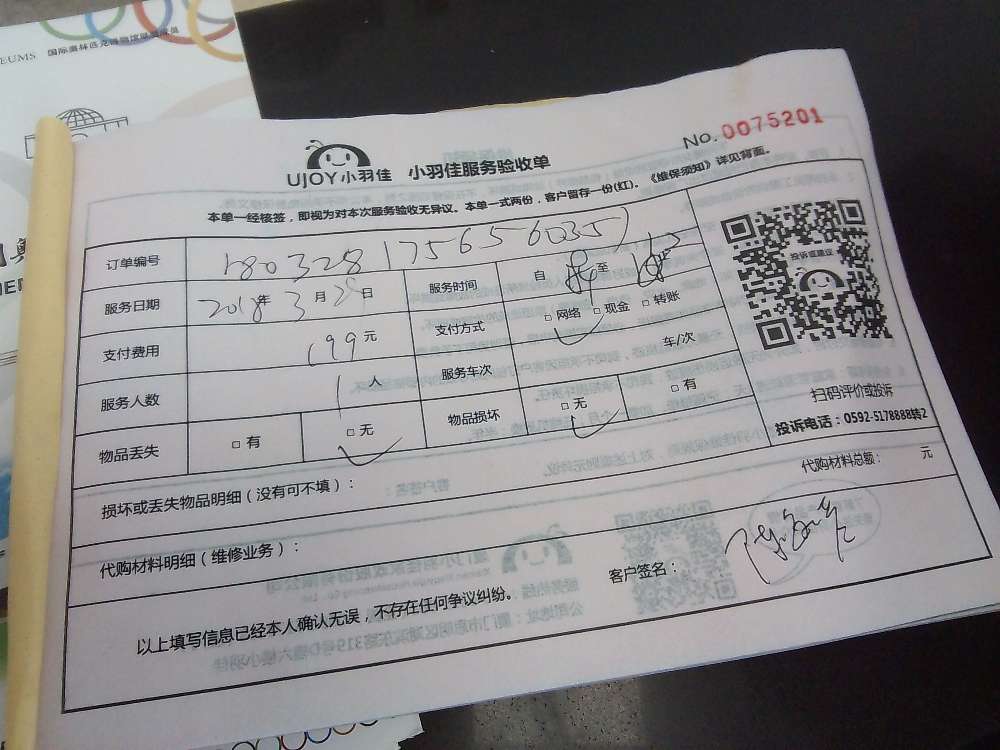 EUMS 国际奥林匹克博物馆
No. 0075201
UJOY小羽佳 小羽佳服务验收单
本单一经核签,即视为对本次服务验收无异议。本单一式两份,客户留存一份(红)。《维保须知》详见背面。
订单编号 180328175656035
服务日期 2018年3月29日 服务时间 自 至
支付费用 199元 支付方式 □网络 □现金 □转账
服务人数 1人 服务车次 车/次
物品丢失 □有 □无 物品损坏 □无 □有
投诉或建议
扫码评价或投诉
投诉电话:0592-5178888转2
损坏或丢失物品明细(没有可不填):
代购材料总额: 元
代购材料明细(维修业务):
客户签名:
以上填写信息已经本人确认无误,不存在任何争议纠纷。